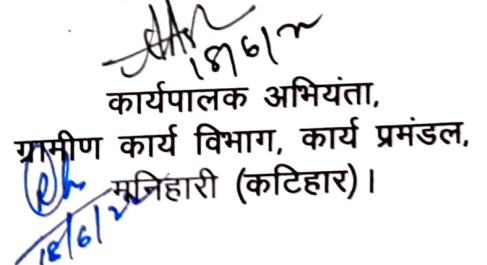 18/6/2
कार्यपालक अभियंता,
ग्रामीण कार्य विभाग, कार्य प्रमंडल,
मनिहारी (कटिहार)।
18/6/2